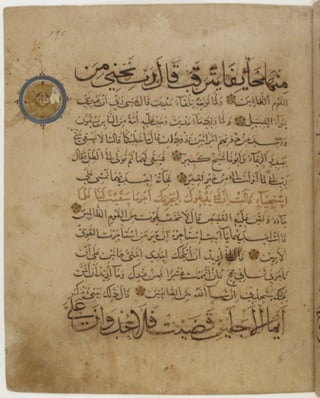 منها خائفا يترقب قال رب نجني من
القوم الظالمين ولما توجه تلقاء مدين قال عسى ربي ان يهديني
سواء السبيل ولما ورد ماء مدين وجد عليه امة من الناس يسقون
ووجد من دونهم امراتين تذودان قال ما خطبكما قالتا لا نسقي حتى
يصدر الرعاء وابونا شيخ كبير فسقى لهما ثم تولى الى الظل فقال
رب اني لما انزلت الي من خير فقير فجاءته احديهما تمشي على
استحياء قالت ان ابي يدعوك ليجزيك اجر ما سقيت لنا فلما
جاءه وقص عليه القصص قال لا تخف نجوت من القوم الظالمين
قالت احديهما يا ابت استاجره ان خير من استاجرت القوي
الامين قال اني اريد ان انكحك احدى ابنتي هاتين على ان
تاجرني ثماني حجج فان اتممت عشرا فمن عندك وما اريد ان اشق
عليك ستجدني ان شاء الله من الصالحين قال ذلك بيني وبينك
ايما الاجلين قضيت فلا عدوان علي